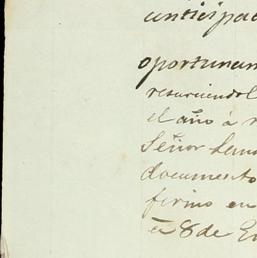 anticipad
oportunam
resarciendol
el año á
Señor
documento
firmo en
á 8 de En